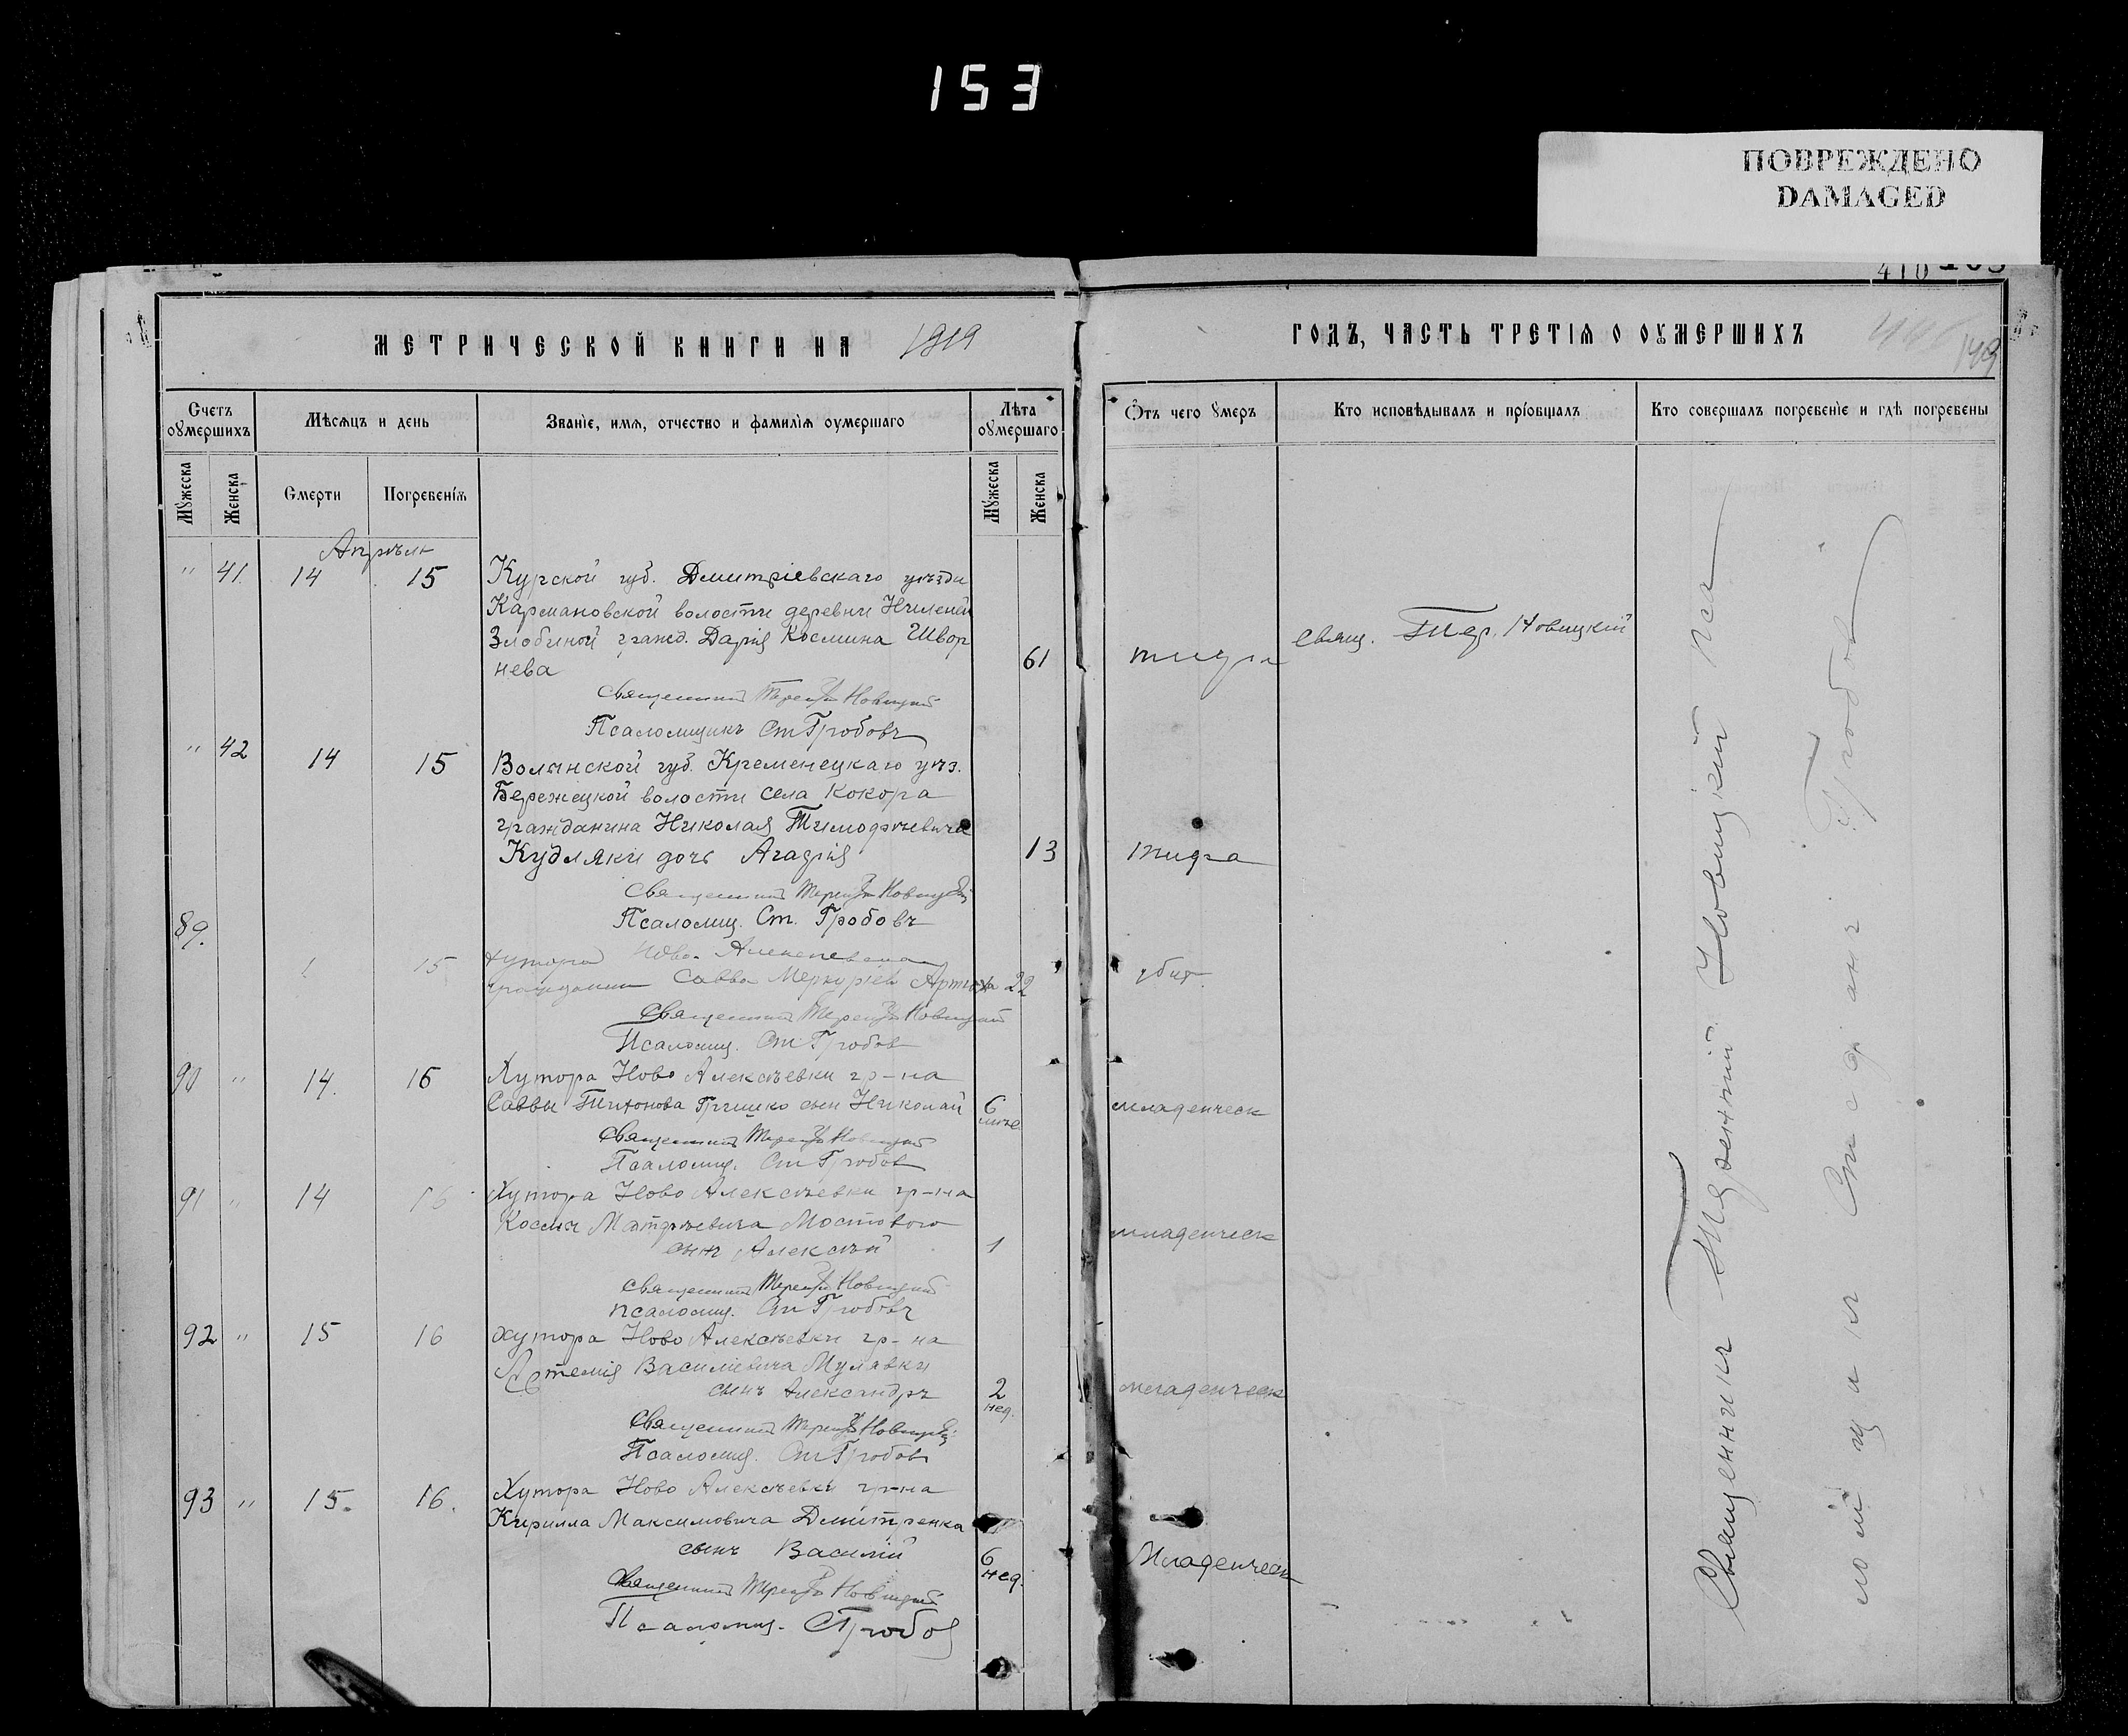 153
ПОВРЕЖДЕНО
DAMAGED
410
149
МЕТРИЧЕСКОЙ КНИГИ НА 1919
ГОДЪ, ЧАСТЬ ТРЕТІЯ О ОУМЕРШИХЪ
Счетъ оумершихъ
Мѣсяцъ и день
Званіе, имя, отчество и фамилія оумершаго
Лѣта оумершаго
Отъ чего умеръ
Кто исповѣдывалъ и пріобщалъ
Кто совершалъ погребеніе и гдѣ погребены
Мужеска
Женска
Смерти
Погребенія
Мужеска
Женска
Апрѣля
" 41. 14 15 Курской губ. Дмитріевскаго уѣзда
Кармановской волости деревни
Злобиной гражд. Дарія Космина Швор
нева 61 тифа свящ. Тер. Новицкій
Священникъ Терентій Новицкій
Псаломщикъ Ст Гробовъ
" 42 14 15 Волынской губ. Кременецкаго уѣз.
Бережецкой волости села Кокора
гражданина Николая Тимофѣевича
Кудляки дочь Агафія 13 тифа
Священникъ Терентій Новицкій
Псаломщ. Ст. Гробовъ
89.
15 хутора Ново
гражданин Савва Меркуріев Артюха 22 убит.
Священникъ Терентій Новицкій
Псаломщ. Ст Гробов
90 " 14. 16 Хутора Ново Алексѣевки гр-на
Саввы Тихонова Гришко сын Николай 6 младенческ
Священникъ Терентій Новицкій
Псаломщ. Ст Гробов
91 " 14 16 Хутора Ново Алексѣевки гр-на
Космы Матфѣевича Мостового
сынъ Алексѣй 1 младенческ
Священникъ Терентій Новицкій
псаломщ. Ст Гробовъ
92 " 15 16 Хутора Ново Алексѣевки гр-на
Артемія Василіевича Мулявки
сынъ Александръ 2 нед. младенческ
Священникъ Терентій Новицкій
Псаломщ. Ст Гробов
93 " 15. 16. Хутора Ново Алексѣевки гр-на
Кирилла Максимовича Дмитренка
сынъ Василій 6 нед. Младенческ
Священникъ Терентій Новицкій
Псаломщ. С Гробов
Священникъ Терентій Новицкій Пса
ломщикъ Стефанъ Гробов